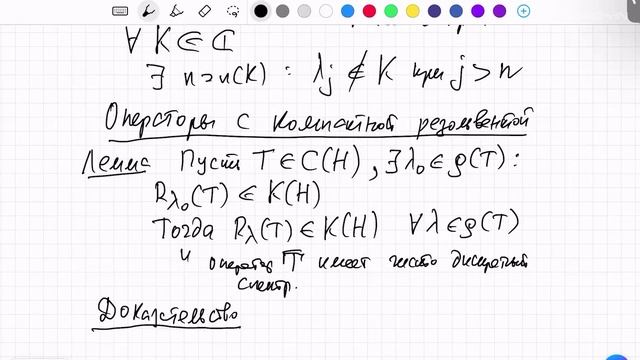 ∀ K ⋐ ℂ
∃ n = n(K) : λj ∉ K при j > n
Операторы с компактной резольвентой
Лемма Пусть T ∈ C(H), ∃ λ₀ ∈ ρ(T) :
R_λ₀(T) ∈ K(H)
Тогда R_λ(T) ∈ K(H) ∀ λ ∈ ρ(T)
и оператор T имеет чисто дискретный
спектр.
Доказательство